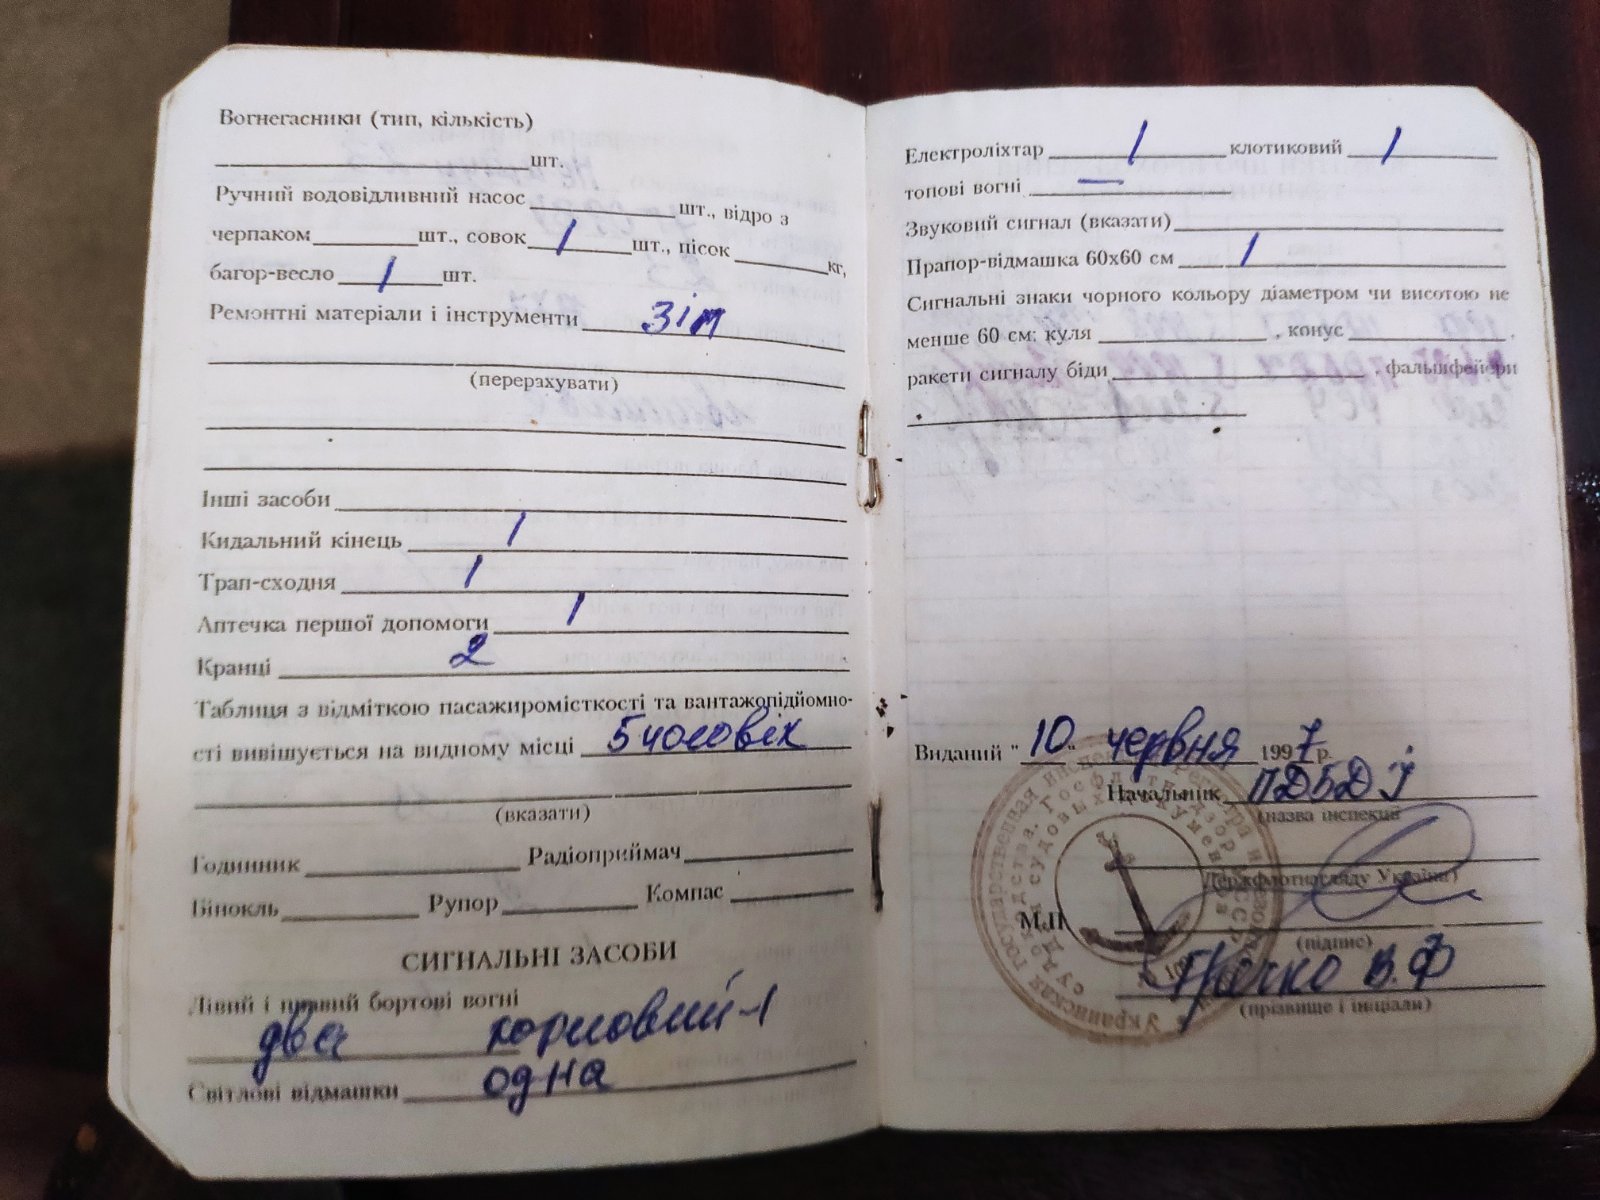 Вогнегасники (тип, кількість)
шт.
Ручний водовідливний насос шт., відро з
черпаком шт., совок 1 шт., пісок кг,
багор-весло 1 шт.
Ремонтні матеріали і інструменти Зіп
(перерахувати)
Інші засоби
Кидальний кінець 1
Трап-сходня 1
Аптечка першої допомоги 1
Кранці 2
Таблиця з відміткою пасажиромісткості та вантажопідйомно-
сті вивішується на видному місці 5 чоловік
(вказати)
Годинник Радіоприймач
Бінокль Рупор Компас
СИГНАЛЬНІ ЗАСОБИ
Лівий і правий бортові вогні
два кормовий-1
Світлові відмашки одна
Електроліхтар 1 клотиковий 1
топові вогні —
Звуковий сигнал (вказати)
Прапор-відмашка 60х60 см 1
Сигнальні знаки чорного кольору діаметром чи висотою не
менше 60 см: куля , конус .
ракети сигналу біди , фальшфейєри
Виданий "10" червня 1997 р.
Начальник ПДБДІ
(назва інспекції
Держфлотнагляду України)
М.П.
(підпис)
В.Ф
(прізвище і ініціали)